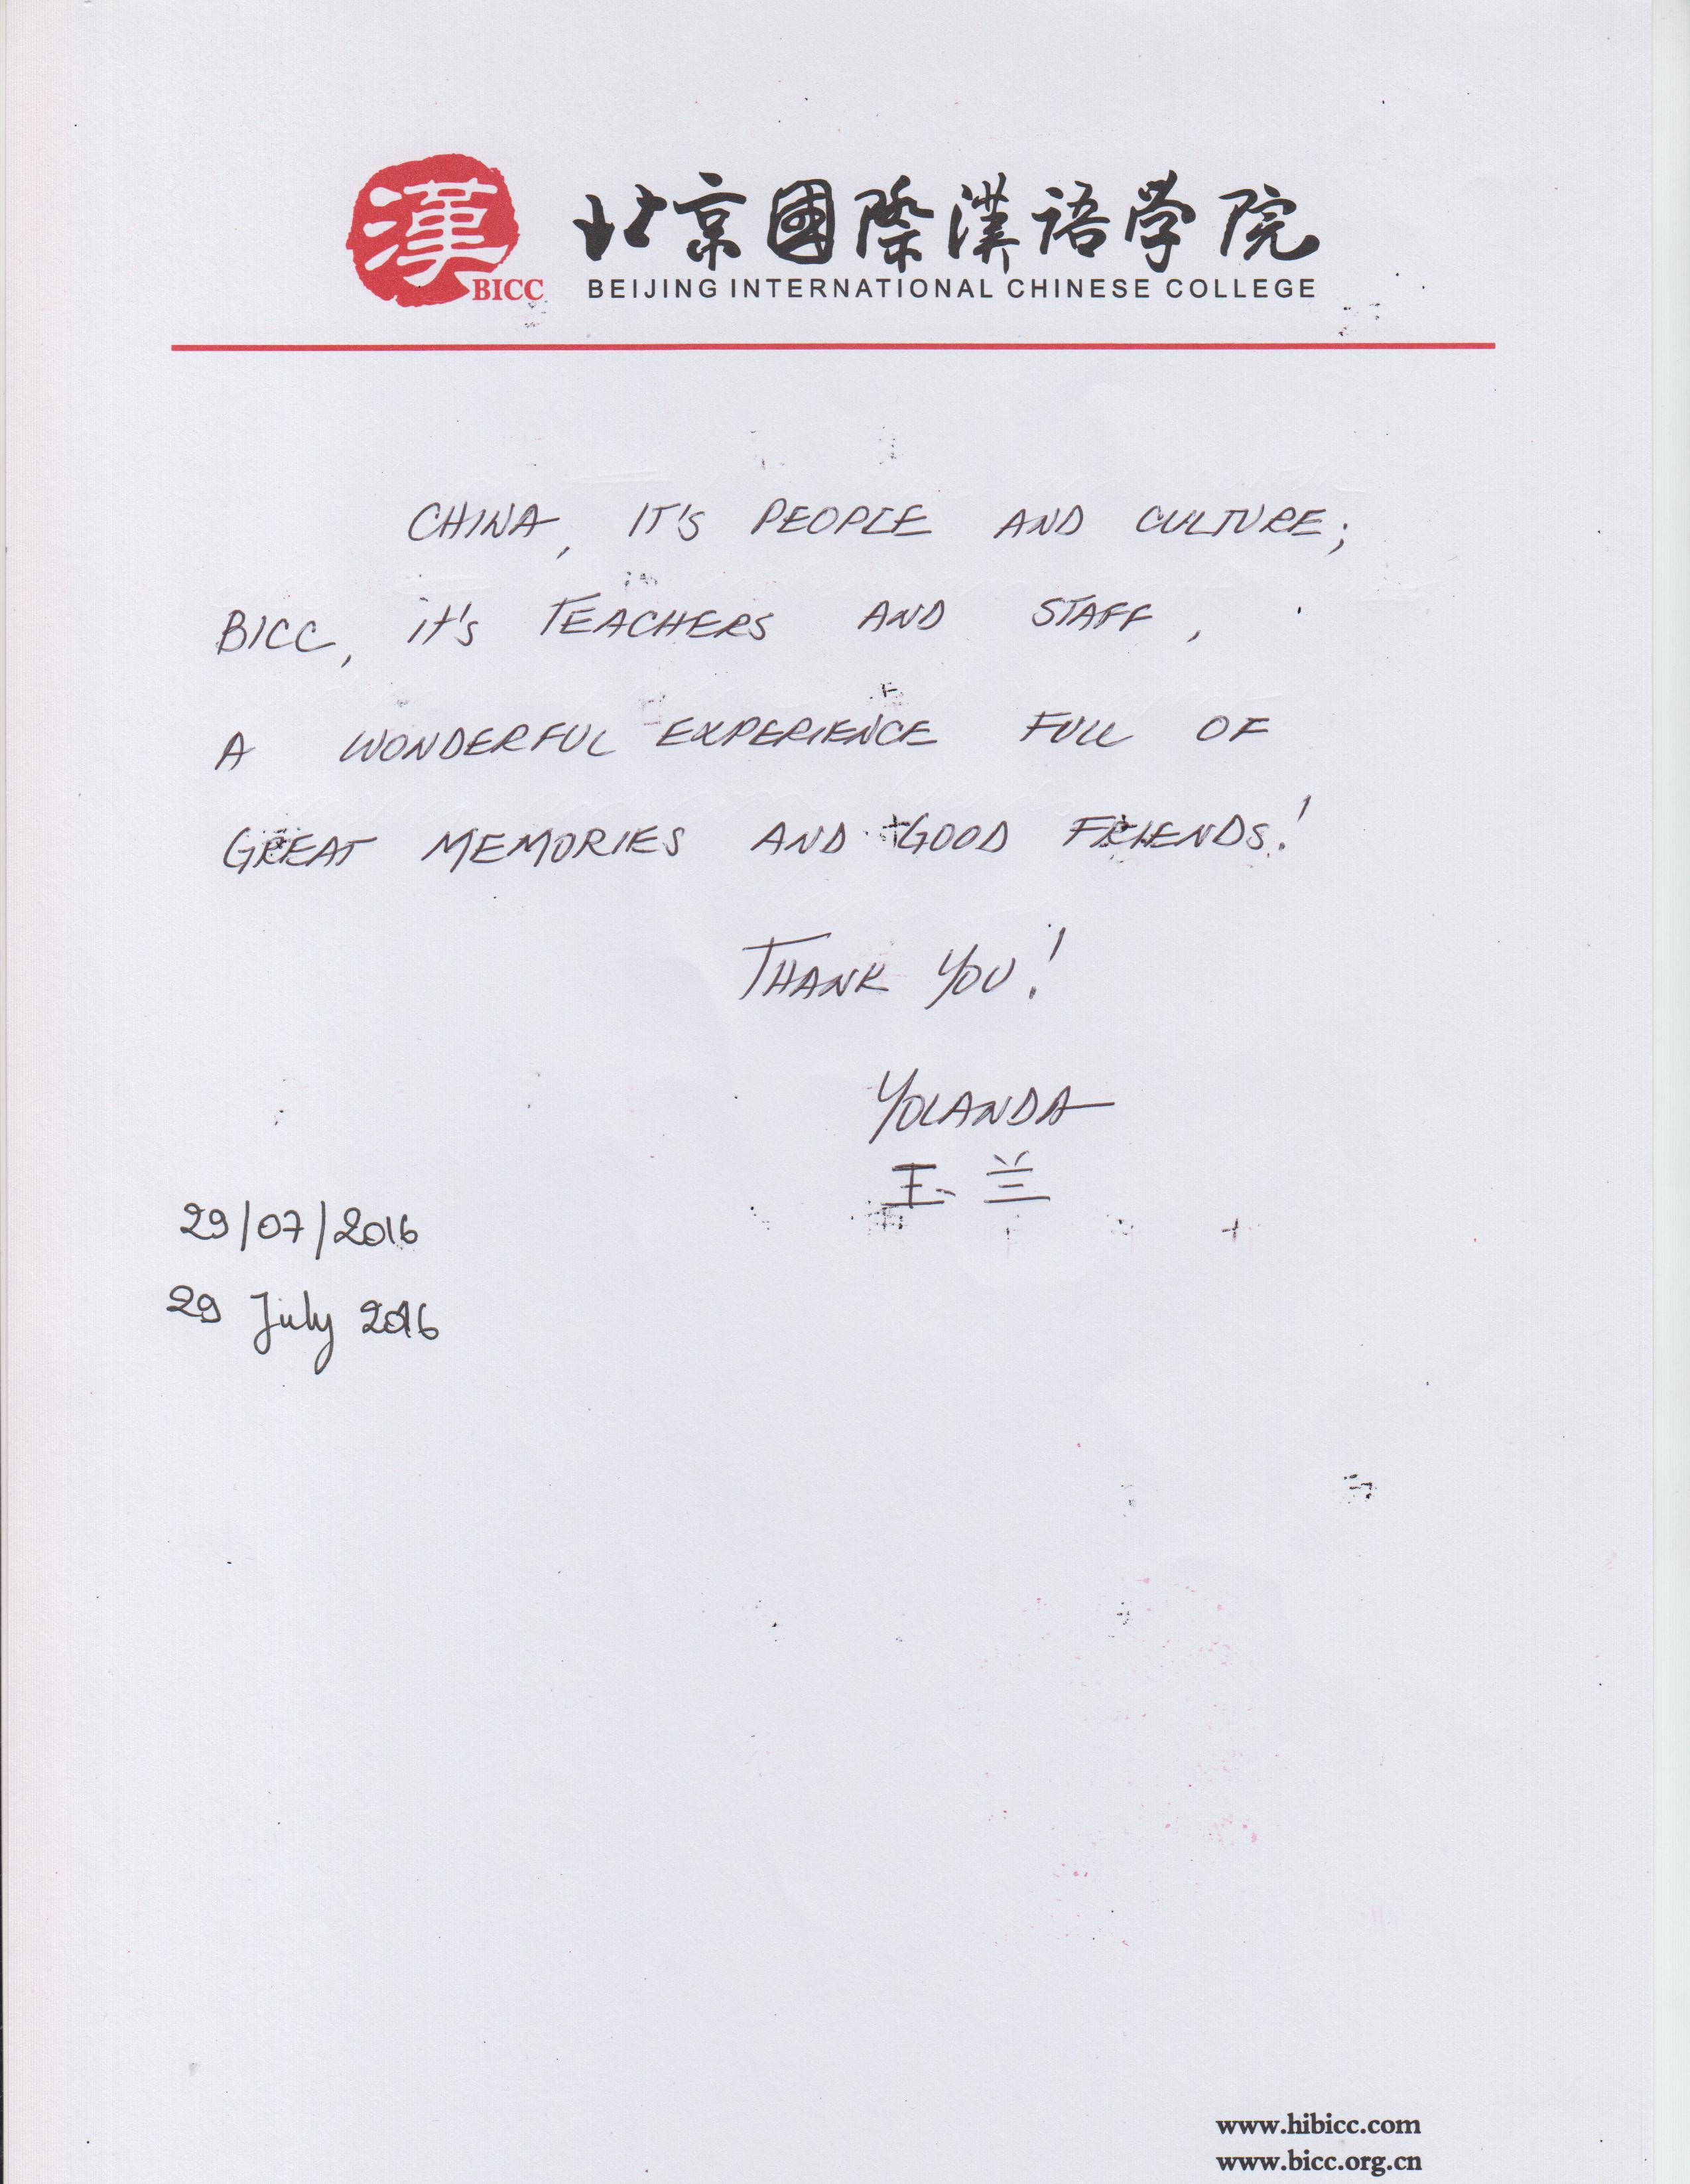 漢
BICC
北京國際漢语学院
BEIJING INTERNATIONAL CHINESE COLLEGE
CHINA, IT'S PEOPLE AND CULTURE;
BICC, it's TEACHERS AND STAFF,
A WONDERFUL EXPERIENCE FULL OF
GREAT MEMORIES AND GOOD FRIENDS!
THANK YOU!
YOLANDA
玉兰
29/07/2016
29 July 2016
www.hibicc.com
www.bicc.org.cn